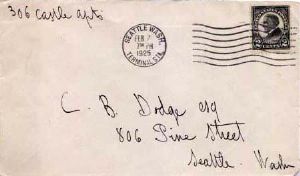 306 Castle apts
SEATTLE, WASH.
FEB 7
7 PM
1925
TERMINAL STA.
C. B. Dodge esq
806 Pine Street
Seattle. Wash